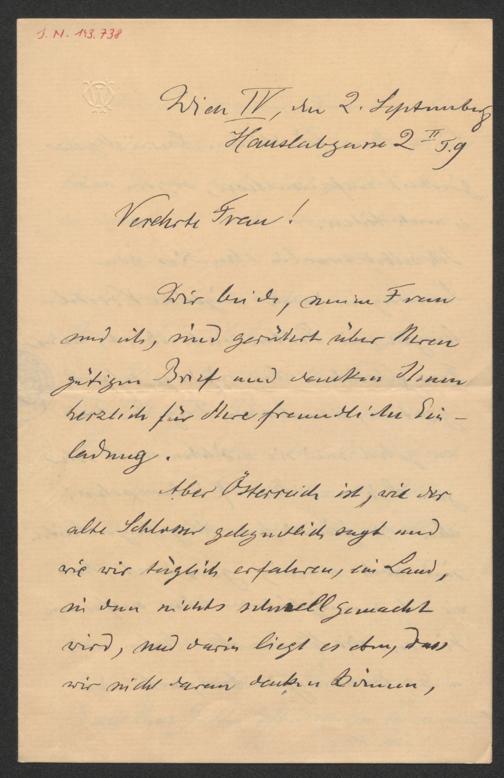 J. N. 143.738
Wien IV, den 2. September
Hauslabgasse 2 II T. 9
Verehrte Frau!
Wir beide, meine Frau
und ich, sind gerührt über Ihren
gütigen Brief und danken Ihnen
herzlich für Ihre freundliche Ein-
ladung.
Aber Österreich ist, wie der
alte Schlosser gelegentlich sagt und
wie wir täglich erfahren, ein Land,
in dem nichts schnell gemacht
wird, und darin liegt es eben, dass
wir nicht daran denken können,